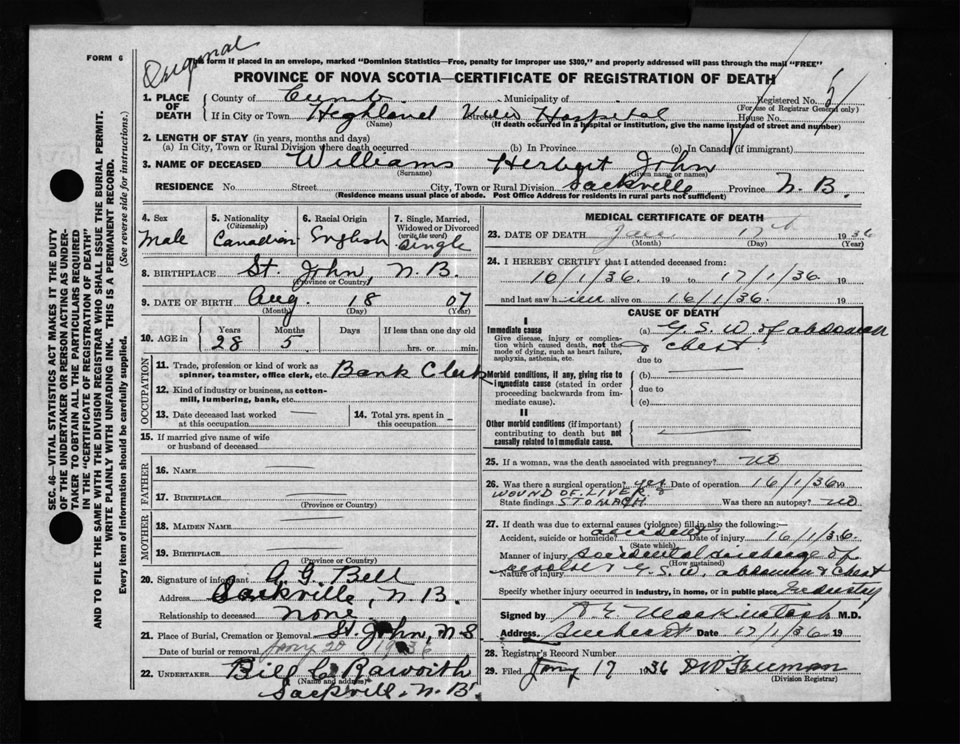 FORM 6
Original
The form if placed in an envelope, marked "Dominion Statistics—Free, penalty for improper use $300," and properly addressed will pass through the mail "FREE"
PROVINCE OF NOVA SCOTIA—CERTIFICATE OF REGISTRATION OF DEATH
1. PLACE OF DEATH
County of Cumb. Municipality of Registered No. 5
(For use of Registrar General only)
If in City or Town Highland View Hospital Street House No.
(Name) (If death occurred in a hospital or institution, give the name instead of street and number)
2. LENGTH OF STAY (in years, months and days)
(a) In City, Town or Rural Division where death occurred (b) In Province (c) In Canada (if immigrant)
3. NAME OF DECEASED Williams Herbert John
(Surname) (Given name or names)
RESIDENCE No. Street City, Town or Rural Division Sackville Province N.B.
(Residence means usual place of abode. Post Office Address for residents in rural parts not sufficient)
4. Sex
Male
5. Nationality
(Citizenship)
Canadian
6. Racial Origin
English
7. Single, Married, Widowed or Divorced
(write the word)
Single
8. BIRTHPLACE St. John, N.B.
(Province or Country)
9. DATE OF BIRTH Aug. 18 07
(Month) (Day) (Year)
10. AGE in Years Months Days If less than one day old
28 5 hrs. or min.
OCCUPATION
11. Trade, profession or kind of work as spinner, teamster, office clerk, etc. Bank Clerk
12. Kind of industry or business, as cotton-mill, lumbering, bank, etc.
13. Date deceased last worked at this occupation —
14. Total yrs. spent in this occupation —
15. If married give name of wife or husband of deceased
FATHER
16. NAME
17. BIRTHPLACE
(Province or Country)
MOTHER
18. MAIDEN NAME
19. BIRTHPLACE
(Province or Country)
20. Signature of informant A. G. Bell
Address Sackville, N.B.
Relationship to deceased none
21. Place of Burial, Cremation or Removal St. John, N S
Date of burial or removal Jany 20 1936
22. UNDERTAKER Bill C Raworth
(Name and address)
Sackville, N.B.
MEDICAL CERTIFICATE OF DEATH
23. DATE OF DEATH Jan. 17th 1936
(Month) (Day) (Year)
24. I HEREBY CERTIFY that I attended deceased from:
16/1/36. 19 to 17/1/36. 19
and last saw him alive on 16/1/36. 19
CAUSE OF DEATH
I
Immediate cause
Give disease, injury or complication which caused death, not the mode of dying, such as heart failure, asphyxia, asthenia, etc.
(a) G.S.W. of abdomen
& chest.
due to
Morbid conditions, if any, giving rise to immediate cause (stated in order proceeding backwards from immediate cause).
(b)
due to
(c)
II
Other morbid conditions (if important) contributing to death but not causally related to immediate cause.
25. If a woman, was the death associated with pregnancy? no
26. Was there a surgical operation? yes Date of operation 16/1/36 19
WOUND OF LIVER &
State findings STOMACH Was there an autopsy? no
27. If death was due to external causes (violence) fill in also the following:
Accident, suicide or homicide? accident Date of injury 16/1/36.
(State which)
Manner of injury accidental discharge of
(How sustained)
revolver
Nature of injury G.S.W. abdomen & chest
Specify whether injury occurred in industry, in home, or in public place Industry
Signed by Mackintosh M.D.
Address Amherst Date 17/1/36 19
28. Registrar's Record Number
29. Filed Jany 17 1936 Freeman
(Division Registrar)
SEC. 46—VITAL STATISTICS ACT MAKES IT THE DUTY
OF THE UNDERTAKER OR PERSON ACTING AS UNDER-
TAKER TO OBTAIN ALL THE PARTICULARS REQUIRED
IN THE "CERTIFICATE OF REGISTRATION OF DEATH"
AND TO FILE THE SAME WITH THE DIVISION REGISTRAR WHO SHALL ISSUE THE BURIAL PERMIT.
WRITE PLAINLY WITH UNFADING INK. THIS IS A PERMANENT RECORD.
Every item of information should be carefully supplied. (See reverse side for instructions.)